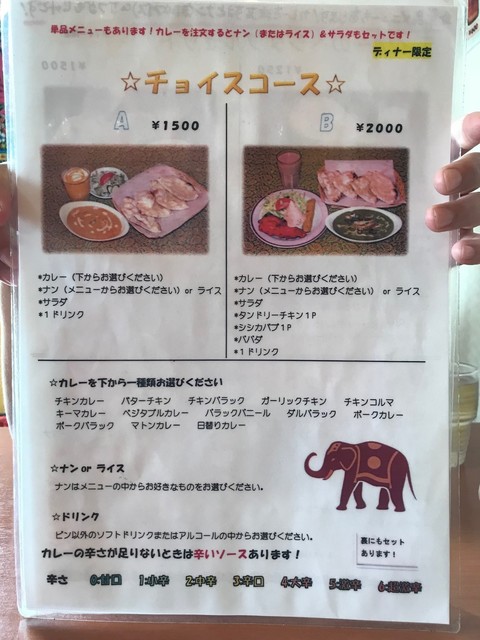 単品メニューもあります！カレーを注文するとナン（またはライス）＆サラダもセットです！
ディナー限定
☆チョイスコース☆
A ￥1500
B ￥2000
*カレー（下からお選びください）
*ナン（メニューからお選びください）or ライス
*サラダ
*１ドリンク
*カレー（下からお選びください）
*ナン（メニューからお選びください） or ライス
*サラダ
*タンドリーチキン１P
*シシカバブ１P
*パパダ
*１ドリンク
☆カレーを下から一種類お選びください
チキンカレー バターチキン チキンバラック ガーリックチキン チキンコルマ
キーマカレー ベジタブルカレー バラックパニール ダルバラック ポークカレー
ポークバラック マトンカレー 日替りカレー
☆ナン or ライス
ナンはメニューの中からお好きなものをお選びください。
☆ドリンク
ビン以外のソフトドリンクまたはアルコールの中からお選びください。
カレーの辛さが足りないときは辛いソースあります！
裏にもセット
あります！
辛さ 0:甘口 1:小辛 2:中辛 3:辛口 4:大辛 5:激辛 6:超激辛